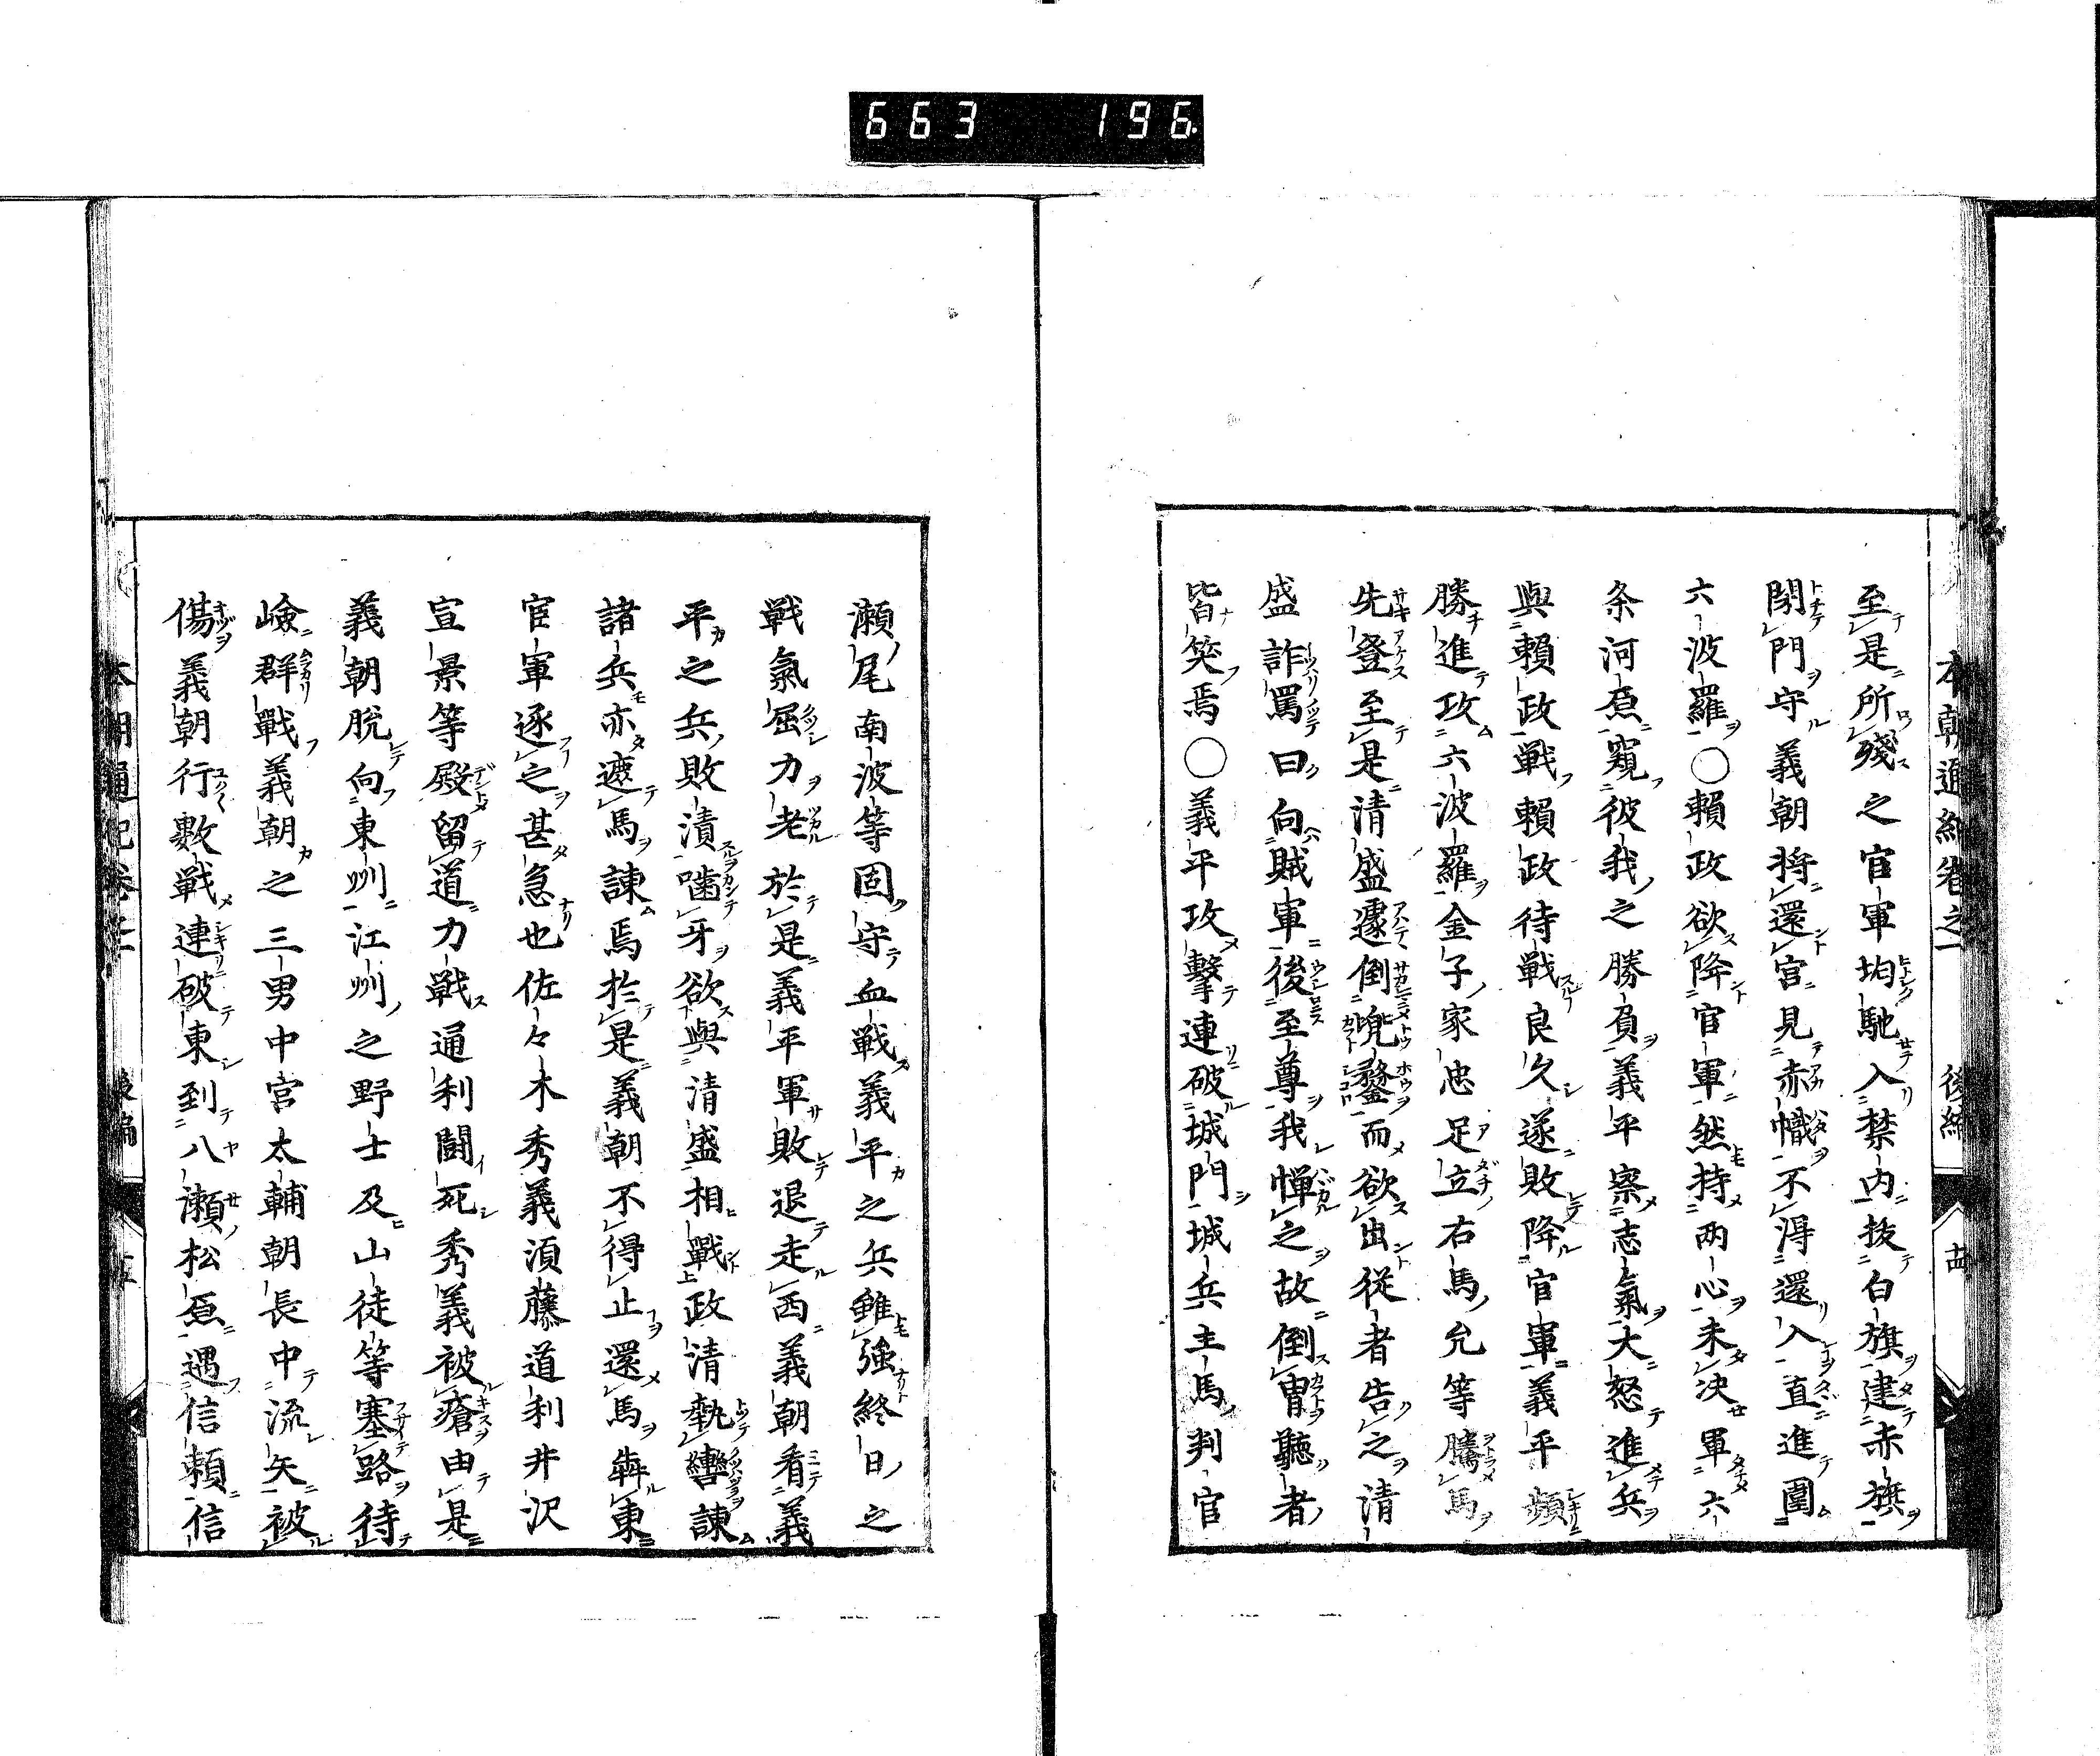 663 196
本朝通紀卷之 後編
至是所殘之官軍均馳入禁内抜白旗建赤旗
閉門守義朝将還宮見赤幟不得還入直進圍
六波羅○頼政欲降官軍然持两心未决軍六
条河原窺彼我之勝負義平察志氣大怒進兵
與頼政戦頼政待戦良久遂敗降官軍義平頻
勝進攻六波羅金子家忠足立右馬允等騰馬
先登至是清盛遽倒兜鍪而欲出従者告之清
盛詐罵曰向賊軍後至尊我憚之故倒冑聴者
皆笑焉○義平攻撃連破城門城兵主馬判官
瀬尾南波等固守血戦義平之兵雖強終日之
戦氣屈力老於是義平軍敗退走西義朝看義
平之兵敗潰噛牙欲與清盛相戰政清執轡諫
諸兵亦遮馬諫焉於是義朝不得止還馬犇東
官軍逐之甚急也佐々木秀義湏藤道利井沢
宣景等殿留道力戦通利闘死秀義被瘡由是
義朝脱向東州江州之野士及山徒等塞路待
嶮群戰義朝之三男中宮太輔朝長中流矢被
傷義朝行數戦連破東到八瀬松原遇信頼信
本朝通紀卷 後編